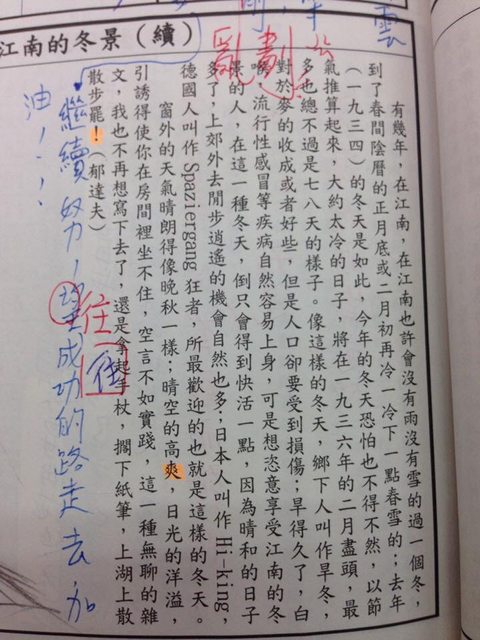 雲
亂劃
江南的冬景（續）
有幾年，在江南，在江南也許會沒有雨沒有雪的過一個冬，
到了春間陰曆的正月底或二月初再冷一冷下一點春雪的；去年
（一九三四）的冬天是如此，今年的冬天恐怕也不得不然，以節
氣推算起來，大約太冷的日子，將在一九三六年的二月盡頭，最
多也總不過是七八天的樣子。像這樣的冬天，鄉下人叫作旱冬，
對於麥的收成或者好些，但是人口卻要受到損傷；旱得久了，白
喉、流行性感冒等疾病自然容易上身，可是想恣意享受江南的冬
景的人，在這一種冬天，倒只會得到快活一點，因為晴和的日子
多了，上郊外去閒步逍遙的機會自然也多；日本人叫作 Hi-king，
德國人叫作 Spaziergang 狂者，所最歡迎的也就是這樣的冬天。
窗外的天氣晴朗得像晚秋一樣；晴空的高爽，日光的洋溢，
引誘得使你在房間裡坐不住，空言不如實踐，這一種無聊的雜
文，我也不再想寫下去了，還是拿起手杖，擱下紙筆，上湖上散
散步罷！（郁達夫）
往
往
繼續努力，成功的路走去加
油！！